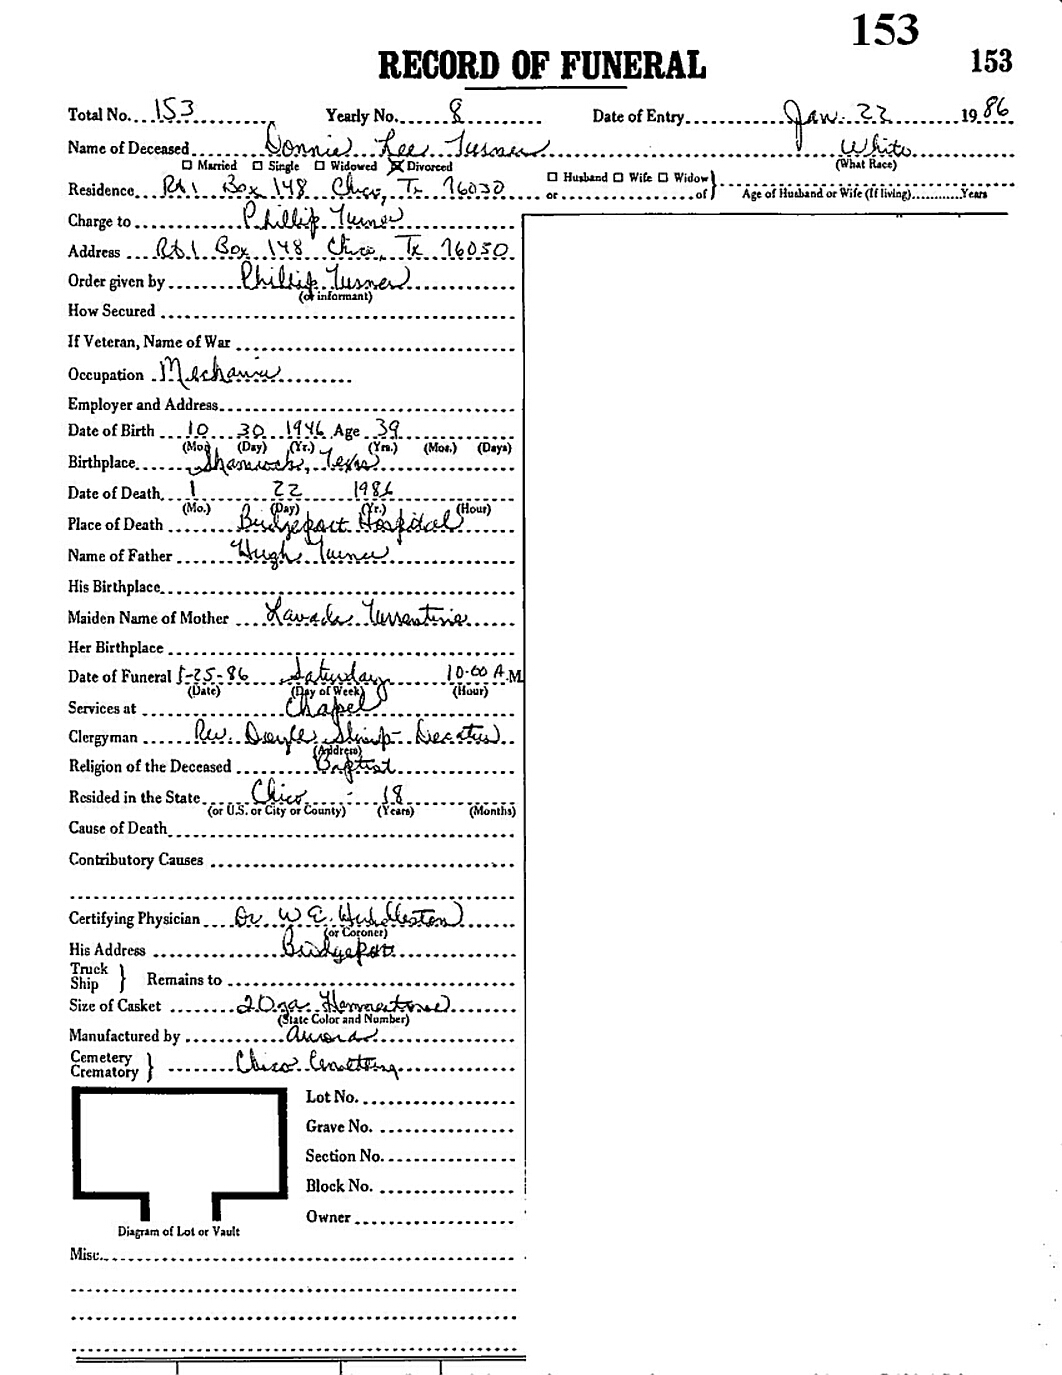 153
RECORD OF FUNERAL 153
Total No. 153 Yearly No. 8 Date of Entry Jan. 22 1986
Name of Deceased Donnie Lee Turner White
☐ Married ☐ Single ☐ Widowed ☒ Divorced (What Race)
Residence Rt 1 Box 148 Chico, Tx 76030 ☐ Husband ☐ Wife ☐ Widow } or of Age of Husband or Wife (If living) Years
Charge to Phillip Turner
Address Rt 1 Box 148 Chico, Tx 76030
Order given by Phillip Turner
(or informant)
How Secured
If Veteran, Name of War
Occupation Mechanic
Employer and Address
Date of Birth 10 30 1946 Age 39
(Mo.) (Day) (Yr.) (Yrs.) (Mos.) (Days)
Birthplace Shamrock, Texas
Date of Death 1 22 1986
(Mo.) (Day) (Yr.) (Hour)
Place of Death Bridgeport Hospital
Name of Father Hugh Turner
His Birthplace
Maiden Name of Mother Lavada Turrentine
Her Birthplace
Date of Funeral 1-25-86 Saturday 10-00 A.M
(Date) (Day of Week) (Hour)
Services at Chapel
Clergyman Rev. Doyle - Decatur
(Address)
Religion of the Deceased Baptist
Resided in the State Chico - 18
(or U.S. or City or County) (Years) (Months)
Cause of Death
Contributory Causes
Certifying Physician Dr. W E. Huddleston
(or Coroner)
His Address Bridgeport
Truck
Ship } Remains to
Size of Casket 20 ga. Hammertone
(State Color and Number)
Manufactured by Aurora
Cemetery
Crematory } Chico Cemetery
Lot No.
Grave No.
Section No.
Block No.
Owner
Diagram of Lot or Vault
Misc.